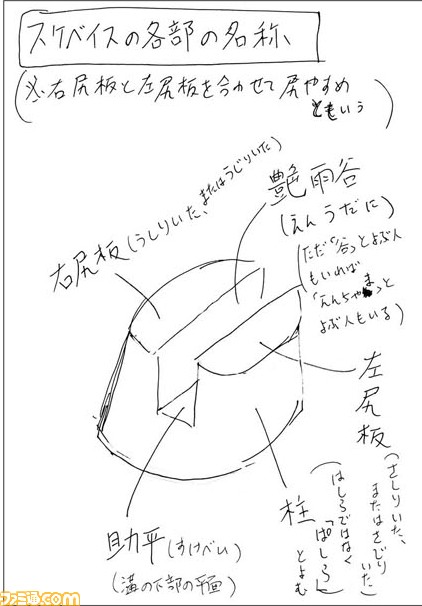 スケベイスの各部の名称
(※右尻板と左尻板を合わせて尻やすめ
ともいう)
艶雨谷
(えんうだに)
(ただ「谷」とよぶ人
もいれば
「えんちゃま」と
よぶ人もいる)
右尻板(うしりいた、またはうじりいた)
左尻板
(さしりいた、
またはさじり
いた)
柱
(はしらではなく
「ぱしら」
とよむ
助平(すけべい)
(溝の下部の平面)
ファミ通.com